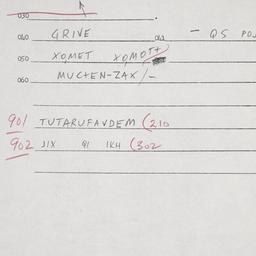 030
040 GRIVE 042 - QS POJ
050 XOMET XOMOTT
MUCTEN-ZAX/-
060
901 TUTARUFAVDEM (210
902 JIX QI IKH (302